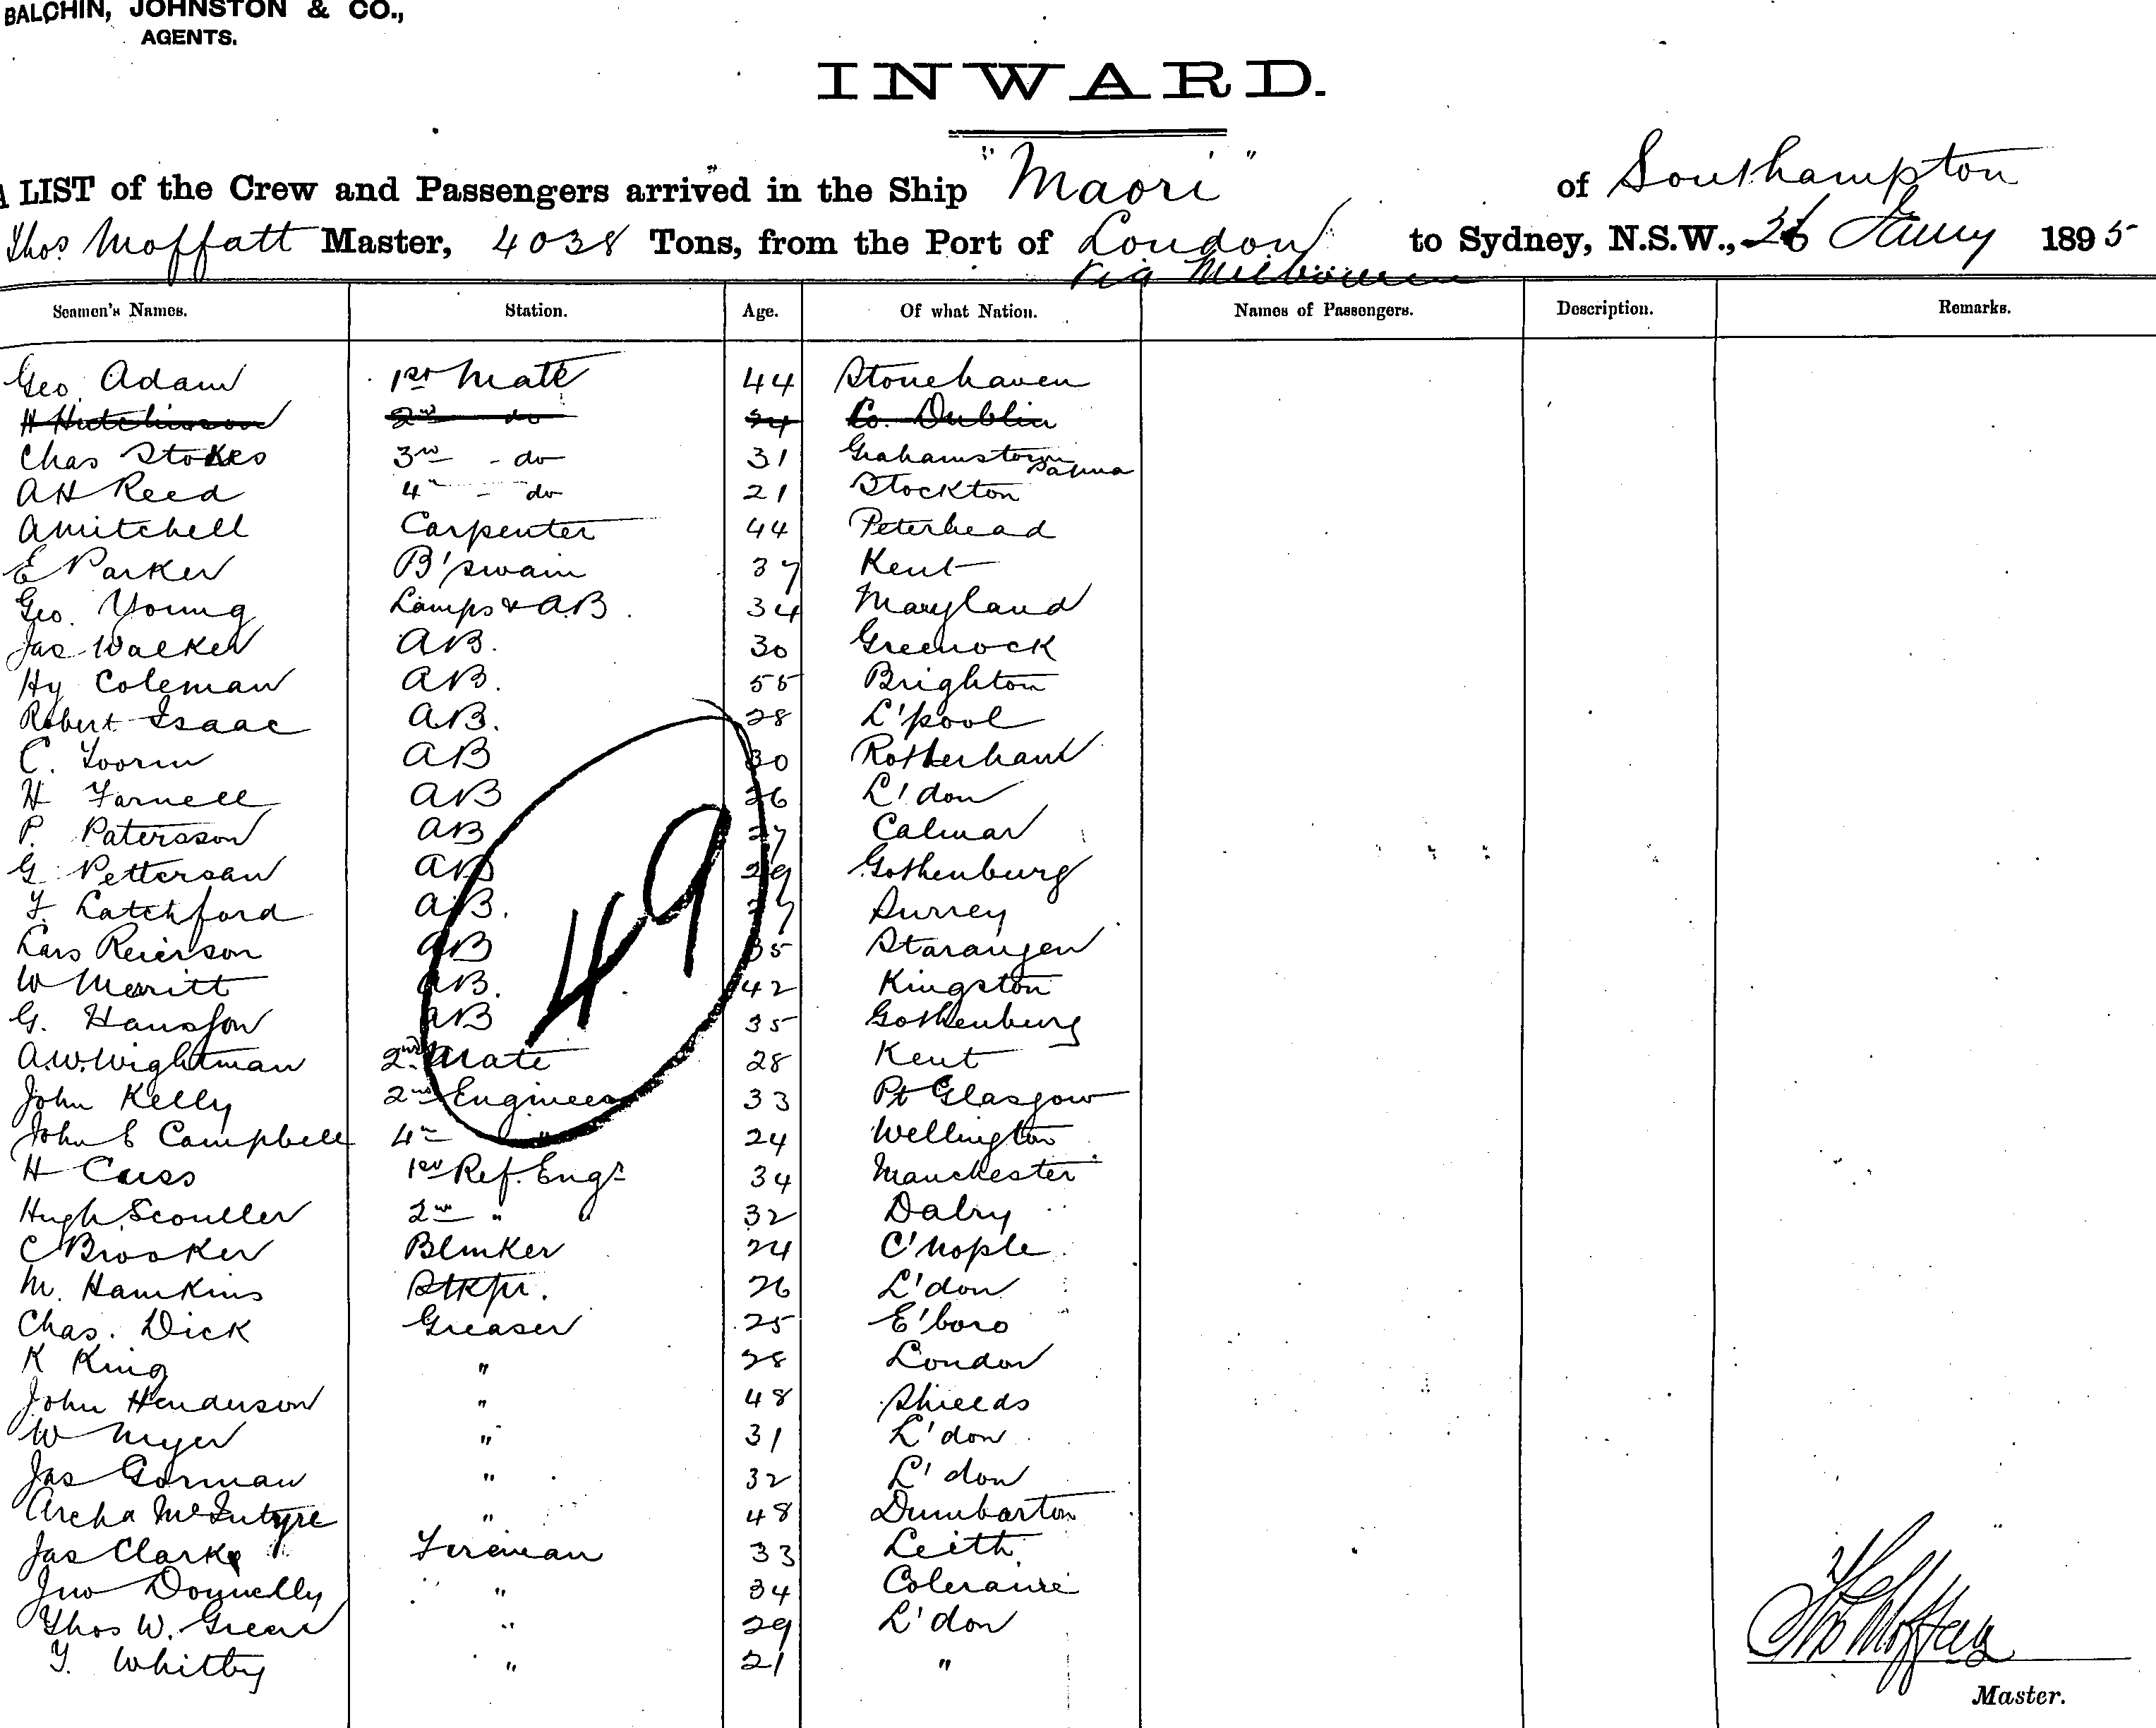 BALCHIN, JOHNSTON & CO.,
AGENTS.
INWARD.
A LIST of the Crew and Passengers arrived in the Ship "Maori" of Southampton
Thos. Moffatt Master, 4038 Tons, from the Port of London to Sydney, N.S.W., 26 Jany 1895
via Melbourne
Seamen's Names. Station. Age. Of what Nation. Names of Passengers. Description. Remarks.
Geo. Adam 1st Mate 44 Stonehaven
H Hutchinson 2nd do 24 Co. Dublin
Chas Stokes 3rd - do 31 Grahamstown
A H Reed 4th - do 21 Stockton
A Mitchell Carpenter 44 Peterhead
E Parker B'swain 37 Kent
Geo. Young Lamps & A.B. 34 Maryland
Jas Walker AB. 30 Greenock
Hy Coleman AB. 55 Brighton
Robert Isaac AB. 28 L'pool
C. AB 30 Rotherham
H Farnell AB 26 L'don
P. Patersson AB 27 Calmar
G Pettersan AB 29 Gothenburg
F. Latchford AB. 27 Surrey
Lars Reierson AB 35 Starangen
W Merritt AB. 42 Kingston
G. Hansson AB 35 Gothenburg
49
A.W. Wightman 2nd Mate 28 Kent
John Kelly 2nd Engineer 33 Pt Glasgow
John E Campbell 4th " 24 Wellington
H Cuss 1st Ref. Engr 34 Manchester
Hugh Scouller 2nd " " 32 Dalry
C Brooker Blmker 24 C'nople
M. Hamkins Stkpr. 26 L'don
Chas. Dick Greaser 25 E'boro
K King " 28 London
John Henderson " 48 Shields
W Myer " 31 L'don
Jas Gorman " 32 L'don
Archd McIntyre " 48 Dumbarton
Jas Clark Fireman 33 Leith
Jno Donnelly " 34 Coleraine
Thos W. Green " 29 L'don
F. Whitby " 21 "
Thos Moffatt
Master.